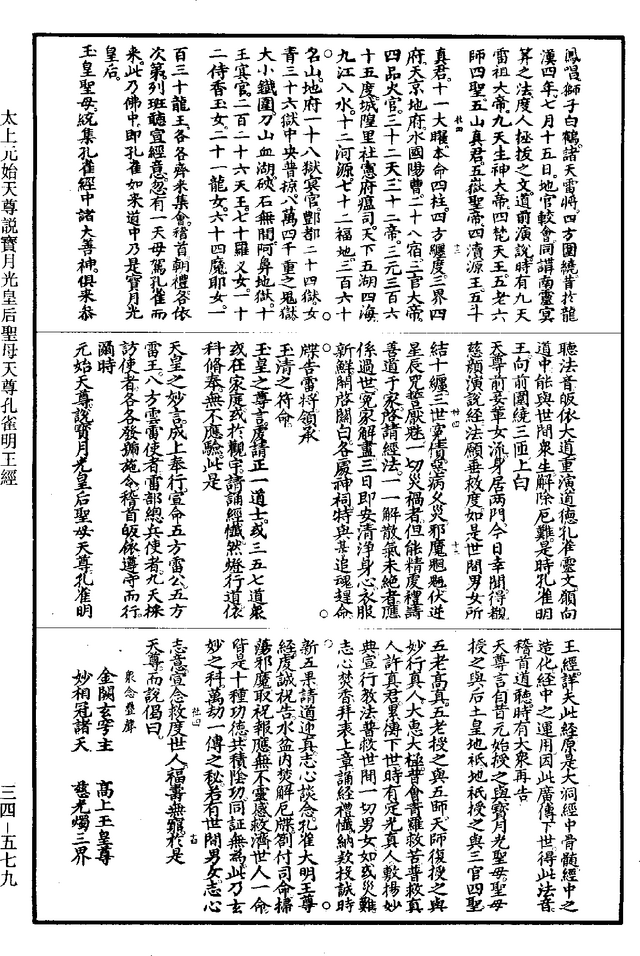 鳳唱獅子白鶴諸天雷將四方圍繞昔於龍
漢四年七月十五日地官較會同謂南靈冥
筭之法度人極拔之文道前演說時有九天
雷祖大帝九天生神大帝四梵天王五老六
師四聖五山真君五嶽聖帝四瀆源王五斗
真君十一大曜本命四柱四方纏度三界四
府天京地府水國陽曹二十八宿三官大帝
四品火官三十二天三十二帝三元三百六
十五度城隍里社憲府瘟司天下五湖四海
九江八水十二河源七十二福地三百六十
名山地府一十八獄冥官酆都二十四獄女
青三十六獄中央普掠八萬四千重之鬼獄
大小鐵圍刀山血湖硤石無間阿鼻地獄十
王冥官二百二十六天王七十羅义女一十
二侍香玉女二十一龍女六十四魔耶女一
百三十龍王各各齊來集會稽首朝禮各依
次第列班聽宣經意忽有一天母駕孔雀而
來此乃佛中即孔雀如來道中乃是寶月光
皇后
玉皇聖母統集孔雀經中諸大善神俱來恭
聽法音皈依大道重演道德孔雀靈文願向
道中能與世間衆生解除厄難是時孔雀明
王向前圍繞三匝上白
天尊前妾華女流身居兩門今日幸聞得覩
慈顔演說經法願垂救度如是世間男女所
結十纏三世冤債惡病久災邪魔魍魎伏逆
星辰咒誓厭魅一切災禍者但能精虔禮請
善道于家啓請經法一一解散氣未絶者應
係過世冤家解盡三日即安清淨身心衣服
新鮮開啓關白各處神祠特與某追魂逞命
牒告雷將領承
玉清之符命
玉皇之尊言虔請正一道士或三五七道衆
或在家庭或於觀宇請誦經懺然燈行道依
科脩奉無不應驗此是
天皇之妙言成上奉行宣命五方雷公五方
雷王八方雲雷使者雷部總兵使者九天採
訪使者各各發猵施令稽首皈依遵守而行
爾時
元始天尊說寶月光皇后聖母天尊孔雀明
王經詳夫此經原是大洞經中骨髓經中之
造化經中之運用因此廣傳下世得此法音
稽首道聽時有大衆再告
天尊言自昔元始授之與寶月光聖母聖母
授之與后土皇地祇地祇授之與三官四聖
五老高真五老授之與五師天師復授之與
妙行真人大惠大極普會青羅救苦普救真
人許真君累傳下世時有定光真人敷揚妙
典宣行教法普救世間一切男女如或災難
志心焚香拜表上章誦經禮懺納款投誠時
新五果請道迎真志心談念孔雀大明王尊
經虔誠祝告水盆内焚解厄牒劄付司命掃
蕩邪魔取祝報應無不靈感救濟世人一命
皆是十種功德共積陰功同証無為此乃玄
妙之科萬劫一傳之秘若有世間男女志心
志意宣念救度世人福壽無窮於是
天尊而說偈曰
衆念疊聲
金闕玄穹主 高上玉皇尊
妙相冠諸天 慈光燭三界
太上元始天尊說寶月光皇后聖母天尊孔雀明王經
三四—五七九